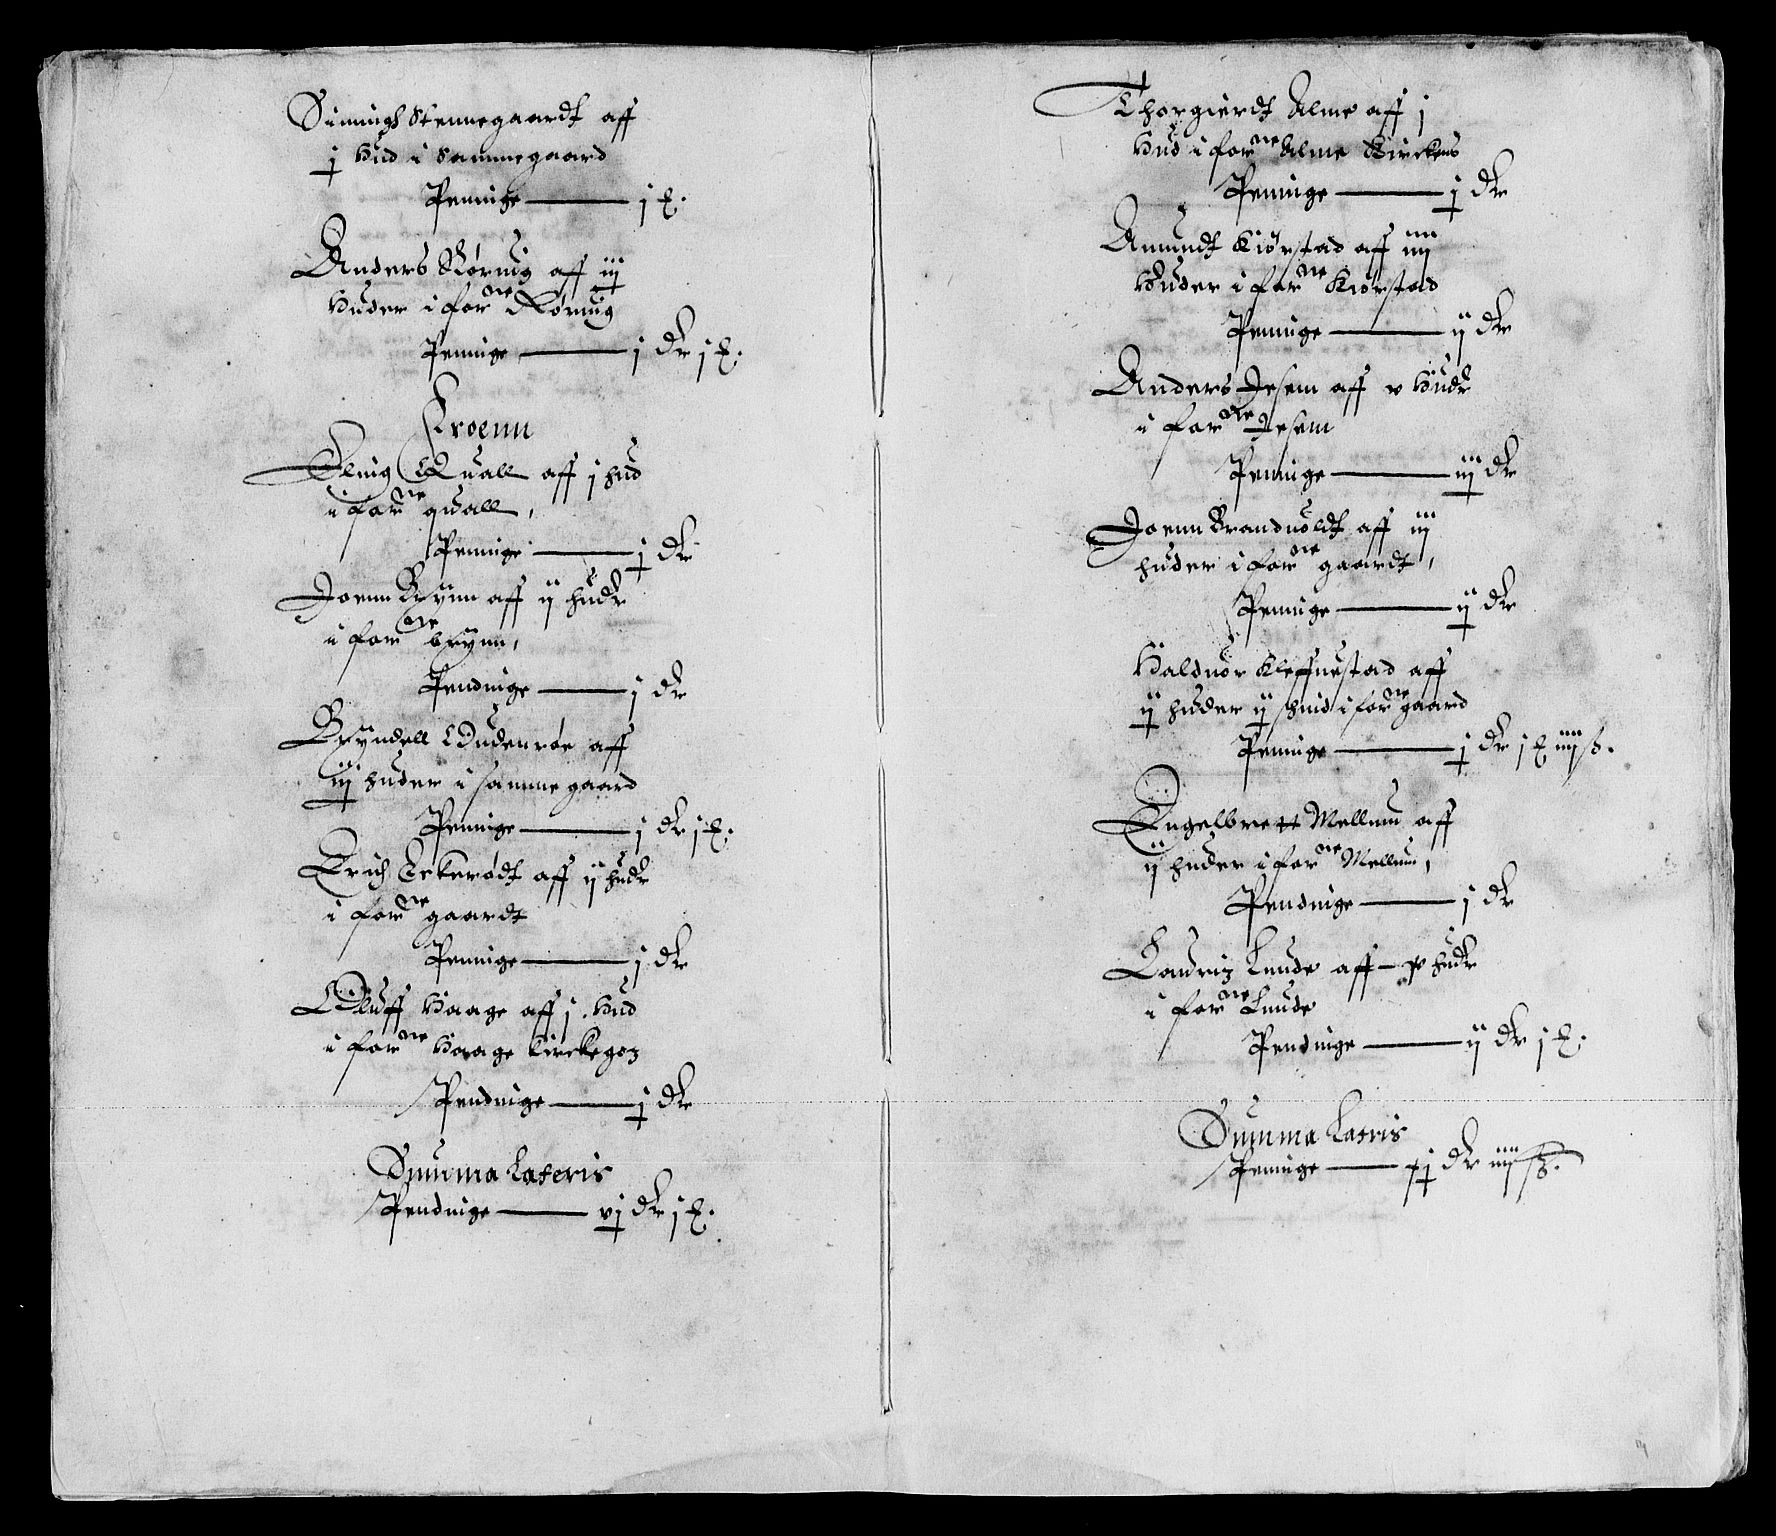 Siuingh Stennegaardt aff
j Hud i Sammegaard
Penninge — j ₰.
Anders Rørnig aff iij
Huder i for ne Rørnig
Peninge — j dlr j ₰.
Kroenn
Elling Quall aff j hud
i for ne quall,
Penninge — j dlr
Joenn Brÿnn aff ij hudr
i for ne brÿnn,
Pendinge — j dlr
Brÿndell Oudenrøe aff
iij huder i samme gaard
Penninge — j dlr j ₰.
Erich Eckerødt aff ij hudr
i for ne gaardt
Penninge — j dlr
Oluff Haage aff j. Hud
i for ne Haage kirckegoz
Pendinge — j dlr
Summa Lateris
Pendinge — vj dlr j ₰.
Thorgierdt Alme aff j
Hud i for ne Alme Kirckens
Penninge — j dlr
Amundt Kiörstad aff iiij
Huder i for ne Kiörstad
Penninge — ij dlr
Anders Jesem aff v Hudr
i for ne Jesem
Penninge — iij dlr
Joenn Branduoldt aff iij
huder i for ne gaardt,
Penninge — ij dlr
Halduor Kleffuestad aff
ij huder ij skind i for ne gaard
Penninge — j dlr j ₰ iiij ß.
Engelbrett Mellum aff
ij huder i for ne Mellum,
Pendinge — j dlr
Lauriz Lunde aff hudr
i for ne Lunde
Pendinge — ij dlr j ₰.
Summa Latris
Penninge — xj dlr iiij ß.